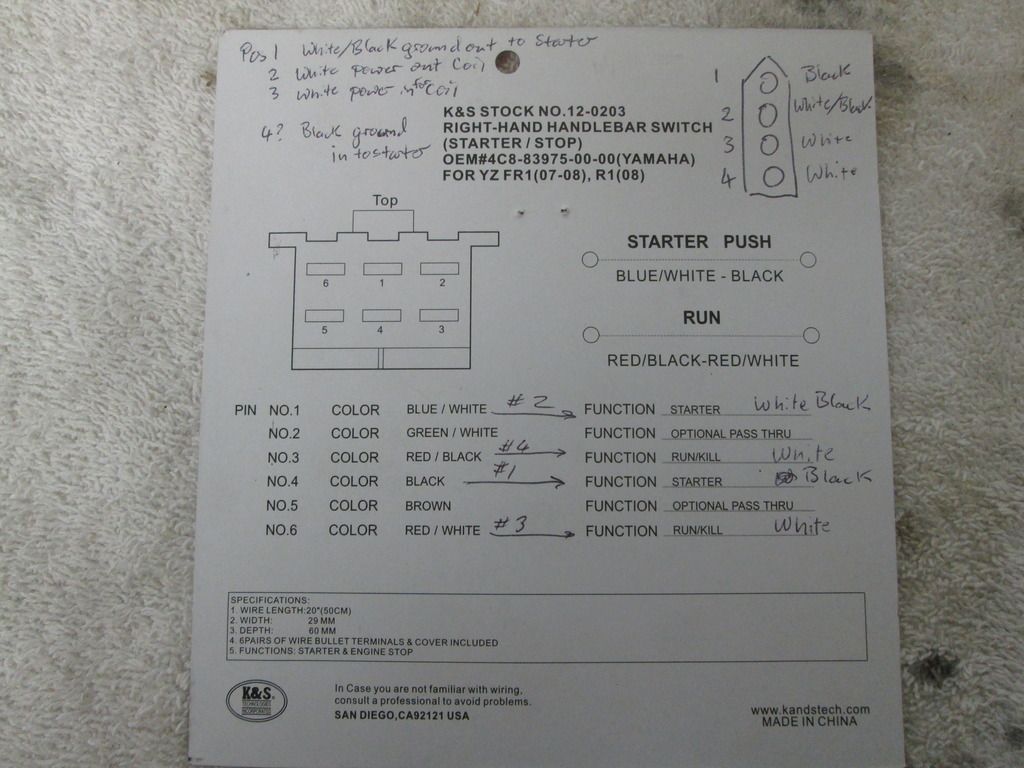 Pos 1 White/Black ground out to Starter
2 White power out Coil
3 White power in for Coil
4? Black ground
in to starter
1 Black
2 White/Black
3 White
4 White
K&S STOCK NO.12-0203
RIGHT-HAND HANDLEBAR SWITCH
(STARTER / STOP)
OEM#4C8-83975-00-00(YAMAHA)
FOR YZ FR1(07-08), R1(08)
Top
6 1 2
5 4 3
STARTER PUSH
BLUE/WHITE - BLACK
RUN
RED/BLACK-RED/WHITE
PIN NO.1 COLOR BLUE / WHITE #2 FUNCTION STARTER White Black
NO.2 COLOR GREEN / WHITE FUNCTION OPTIONAL PASS THRU
NO.3 COLOR RED / BLACK #4 FUNCTION RUN/KILL White
NO.4 COLOR BLACK #1 FUNCTION STARTER Black
NO.5 COLOR BROWN FUNCTION OPTIONAL PASS THRU
NO.6 COLOR RED / WHITE #3 FUNCTION RUN/KILL White
SPECIFICATIONS:
1. WIRE LENGTH:20"(50CM)
2. WIDTH: 29 MM
3. DEPTH: 60 MM
4. 6PAIRS OF WIRE BULLET TERMINALS & COVER INCLUDED
5. FUNCTIONS: STARTER & ENGINE STOP
K&S
TECHNOLOGIES
INCORPORATED
In Case you are not familiar with wiring,
consult a professional to avoid problems.
SAN DIEGO,CA92121 USA
www.kandstech.com
MADE IN CHINA